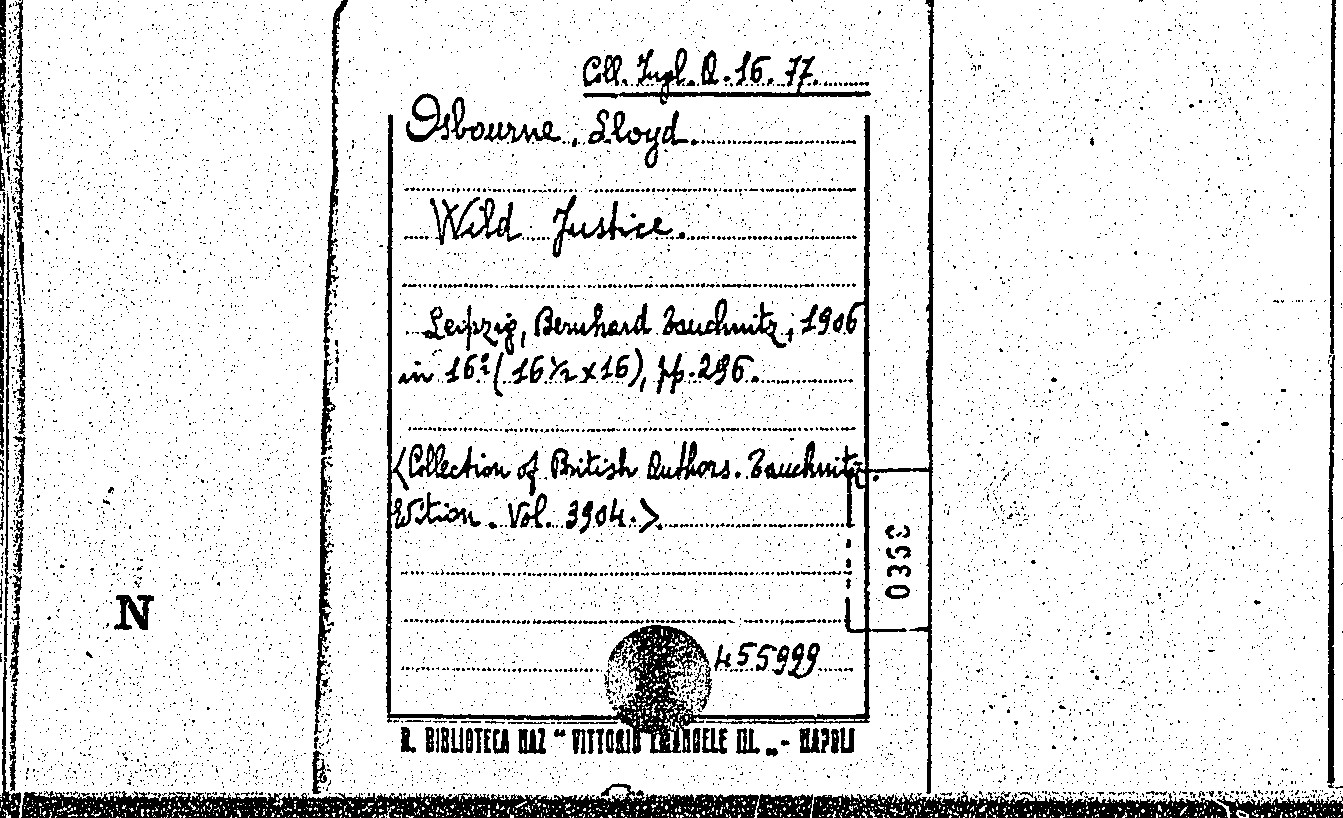 Coll. Ingl. Q. 16. 77.
Osbourne, Lloyd.
Wild Justice.
Leipzig, Bernhard Tauchnitz, 1906
in 16º (16½ x 16), pp. 296.
<Collection of British Authors. Tauchnitz.
Edition. Vol. 3904.>
0353
N
455999
R. BIBLIOTECA NAZ " VITTORIO EMANUELE III. „ - NAPOLI